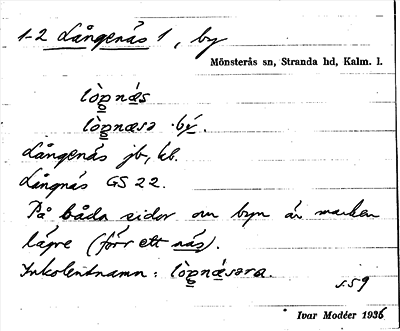 1-2 Långenäs 1, by
Mönsterås sn, Stranda hd, Kalm. l.
lòŋnæ̀s
lòŋnæsə bý.
Långenäs jb, kb.
Långnäs GS 22.
På båda sidor om byn är marken
lägre (förr ett näs).
Inkolentnamn: lòŋnæ̀səra.
s. 59
Ivar Modéer 1936